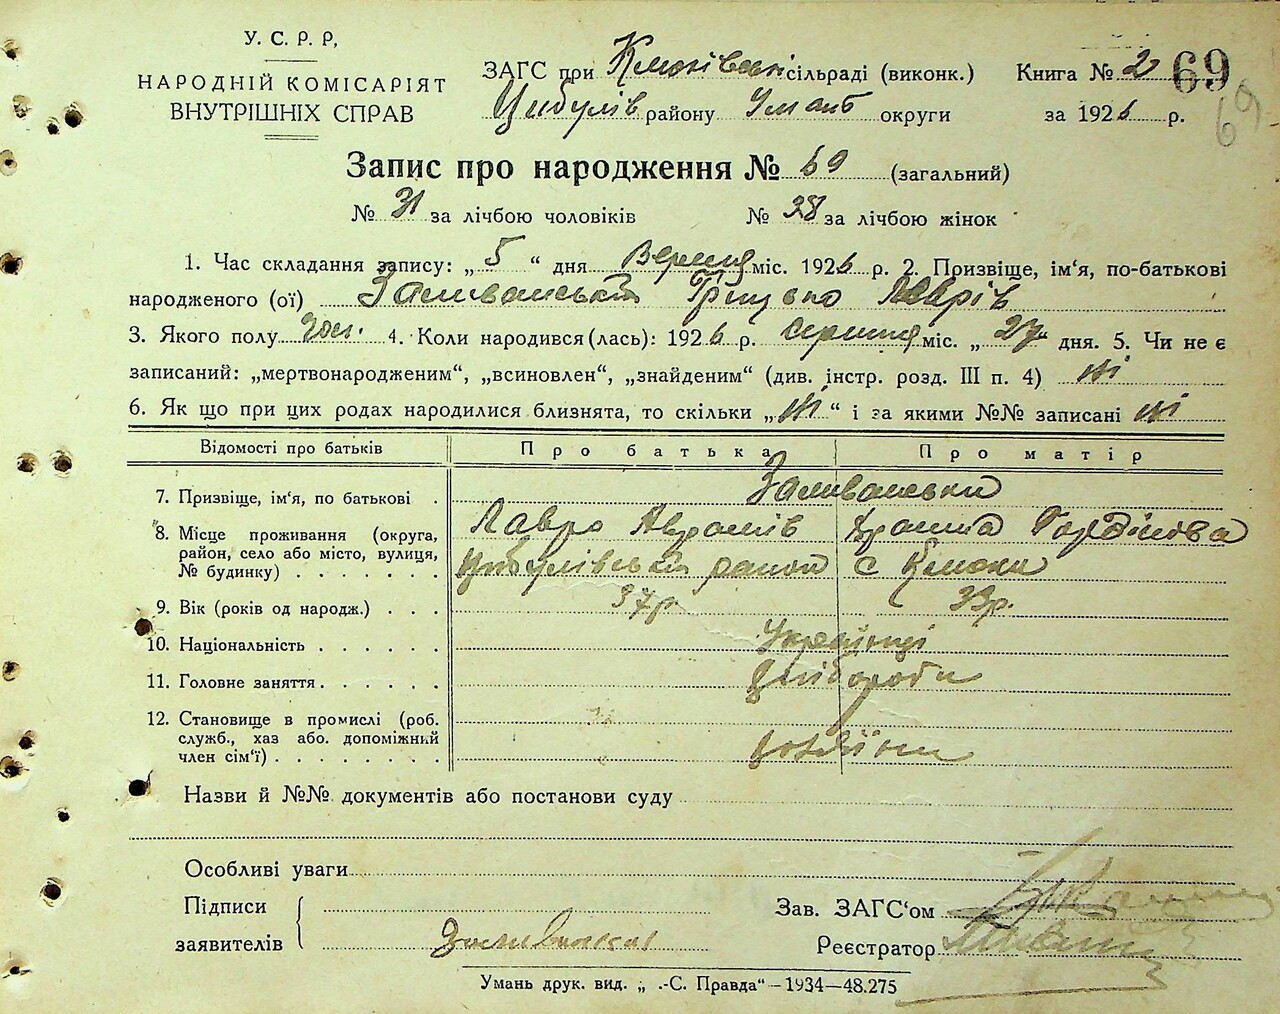 У. С. Р. Р.
НАРОДНІЙ КОМІСАРІЯТ
ВНУТРІШНІХ СПРАВ
ЗАГС при сільраді (виконк.) Книга № 2 69
Цибулів району Уман округи за 1926 р. 69
Запис про народження № 69 (загальний)
№ 31 за лічбою чоловіків № 38 за лічбою жінок
1. Час складання запису: „ 5 “ дня міс. 1926 р. 2. Призвіще, ім'я, по-батькові
народженого (ої) Заливанський Грицько Лаврів
3. Якого полу чол. 4. Коли народився (лась): 1926 р. серпня міс. „ 27 дня. 5. Чи не є
записаний: „мертвонародженим“, „всиновлен“, „знайденим“ (див. інстр. розд. III п. 4) ні
6. Як що при цих родах народилися близнята, то скільки „ ні “ і за якими №№ записані ні
Відомості про батьків Про батька Про матір
7. Призвіще, ім'я, по батькові . Заливанськи
Лавро Аврамів
8. Місце проживання (округа,
район, село або місто, вулиця,
№ будинку) . . . . . . . Цибулівський район с Кислики
9. Вік (років од народж.) . . . 37р 33р.
10. Національність . . . . . . Українці
11. Головне заняття . . . . . . хлібороби
12. Становище в промислі (роб.
служб., хаз або. допоміжний
член сім'ї) . . . . . . . . хазяїни
Назви й №№ документів або постанови суду
Особливі уваги
Підписи
заявителів
Зав. ЗАГС'ом
Реєстратор
Умань друк. вид. „ .-С. Правда“ — 1934—48.275